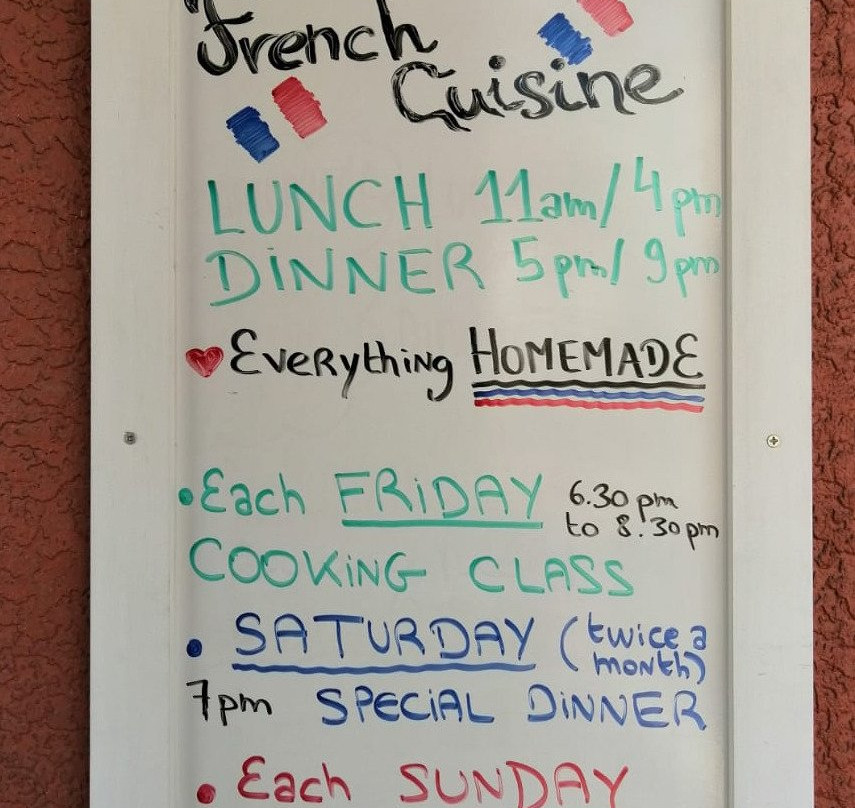 French
Cuisine
LUNCH 11am/4pm
DiNNER 5pm/9pm
Everything HOMEMADE
• Each FRiDAY 6.30pm
to 8.30pm
COOKiNG CLASS
• SATURDAY (twice a
month)
7pm SPECiAL DiNNER
• Each SUNDAY